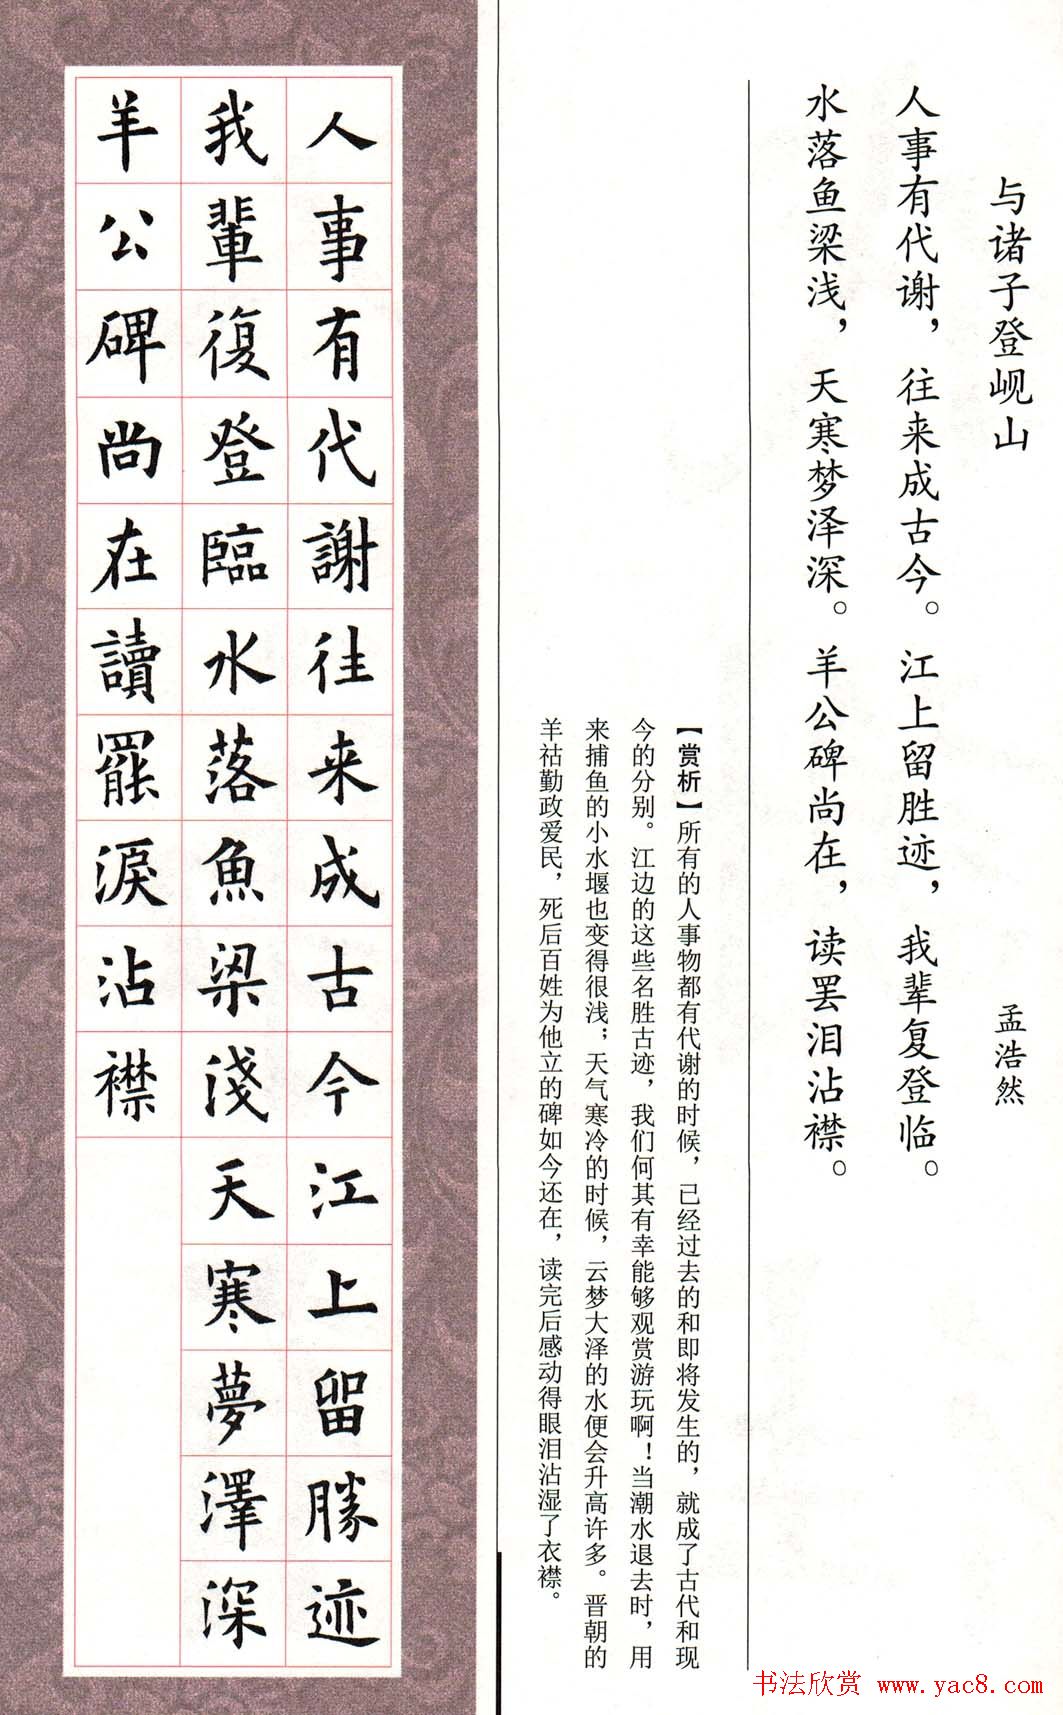 与诸子登岘山
孟浩然
人事有代谢，往来成古今。江上留胜迹，我辈复登临。
水落鱼梁浅，天寒梦泽深。羊公碑尚在，读罢泪沾襟。
【赏析】所有的人事物都有代谢的时候，已经过去的和即将发生的，就成了古代和现
今的分别。江边的这些名胜古迹，我们何其有幸能够观赏游玩啊！当潮水退去时，用
来捕鱼的小水堰也变得很浅；天气寒冷的时候，云梦大泽的水便会升高许多。晋朝的
羊祜勤政爱民，死后百姓为他立的碑如今还在，读完后感动得眼泪沾湿了衣襟。
人事有代謝往来成古今江上留勝迹
我輩復登臨水落魚梁淺天寒夢澤深
羊公碑尚在讀罷淚沾襟
书法欣赏 www.yac8.com